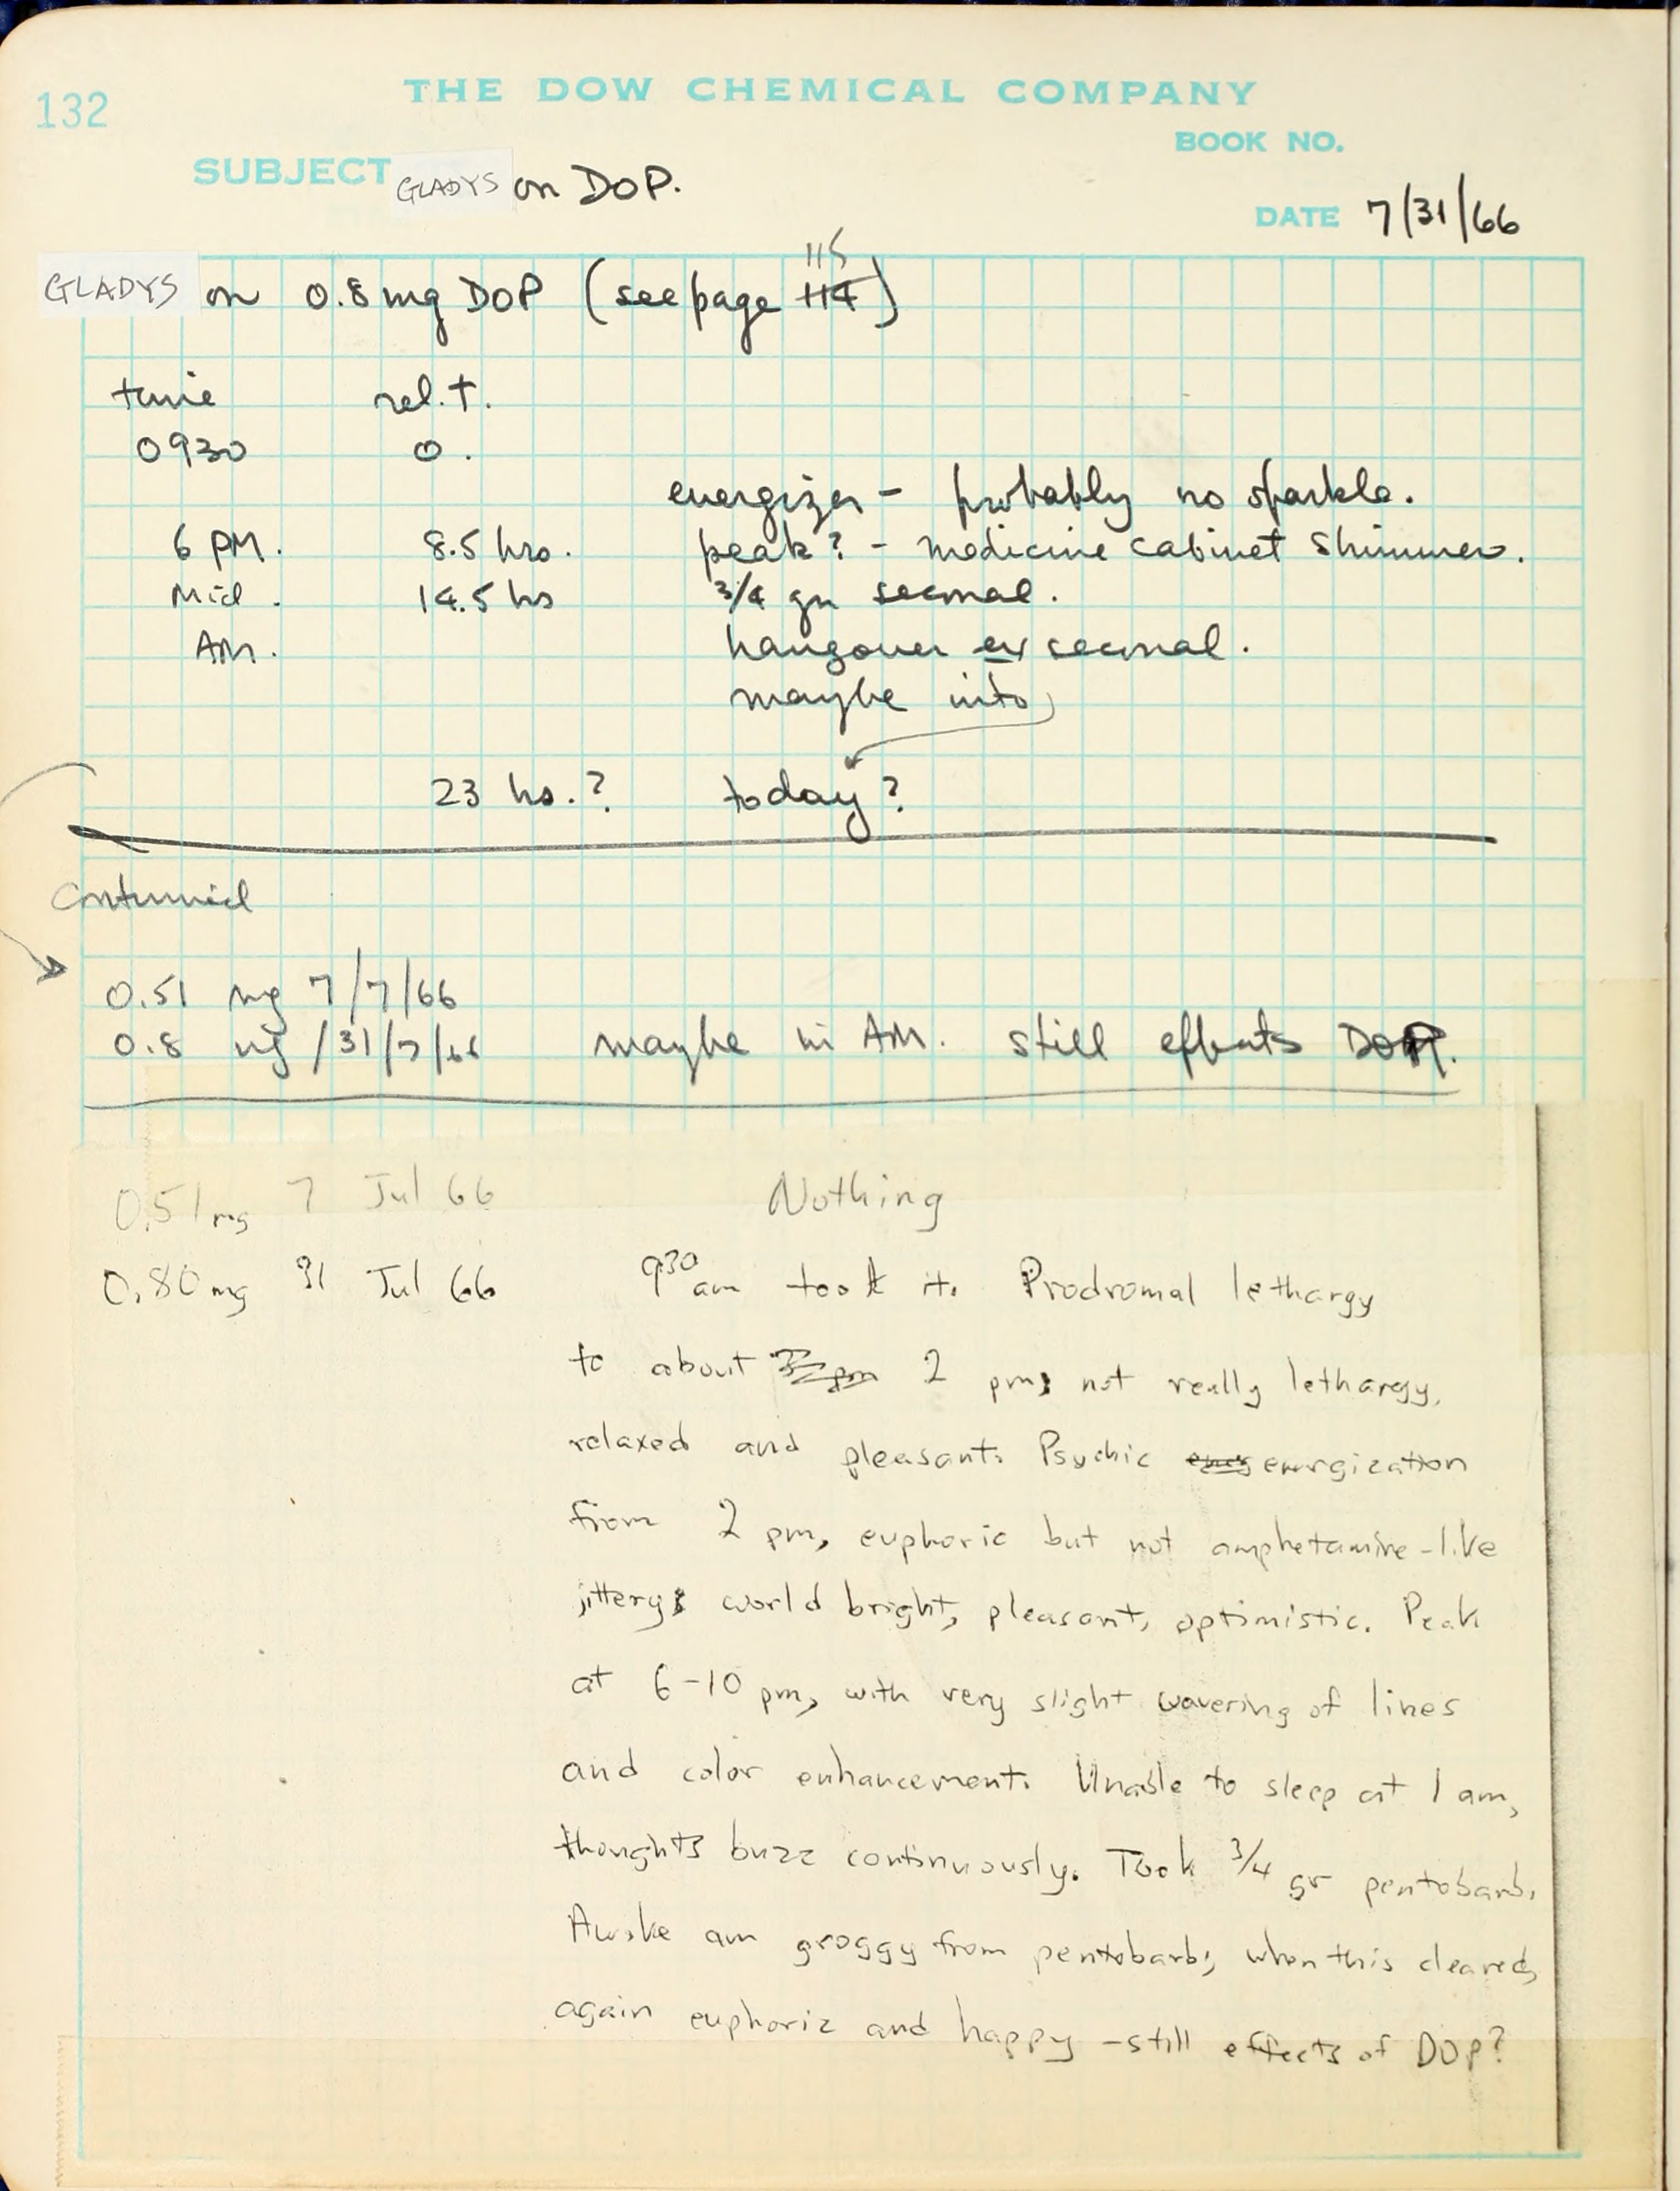 132
THE DOW CHEMICAL COMPANY
BOOK NO.
SUBJECT GLADYS on DOP.
DATE 7/31/66
115
GLADYS on 0.8 mg DOP (see page 114)
time rel. t.
0930 0.
energizer - probably no sparkle.
6 PM. 8.5 hrs. peak? - medicine cabinet shimmer.
Mid. 14.5 hs 3/4 gn seconal.
AM. hangover ex seconal.
maybe into
23 hs.? today?
Continued
0.51 mg 7/7/66
0.8 mg /31/7/66 maybe in AM. still effects DOP.
0.51 mg 7 Jul 66 Nothing
0.80 mg 31 Jul 66 930 am took it. Prodromal lethargy
to about 2 pm; not really lethargy,
relaxed and pleasant. Psychic energization
from 2 pm, euphoric but not amphetamine-like
jittery; world bright, pleasant, optimistic. Peak
at 6-10 pm, with very slight wavering of lines
and color enhancement. Unable to sleep at 1 am,
thoughts buzz continuously. Took 3/4 gr pentobarb.
Awoke am groggy from pentobarb; when this cleared,
again euphoric and happy - still effects of DOP?